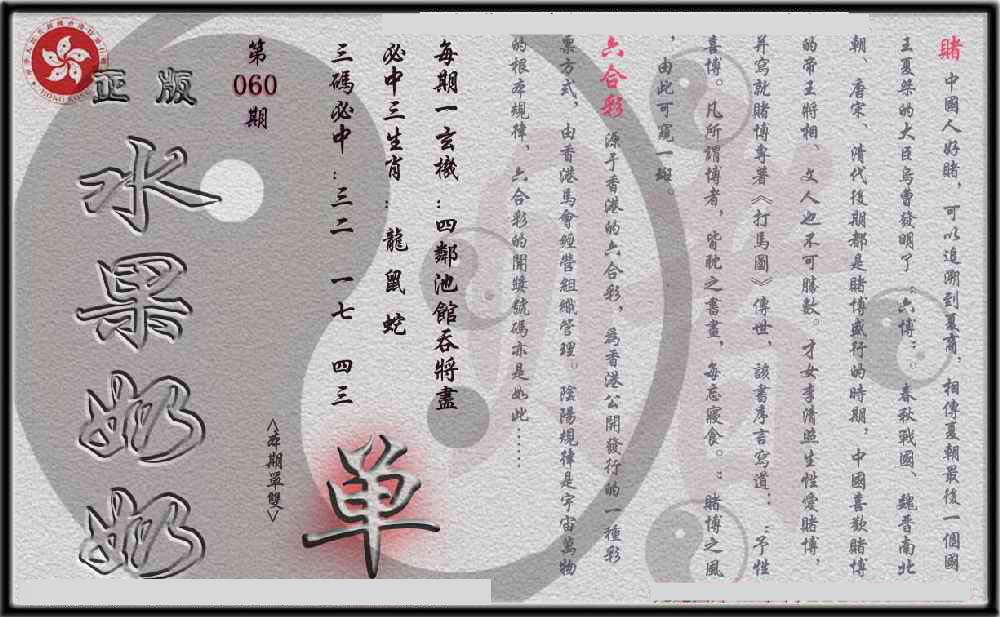 賭 中國人好賭，可以追溯到夏商．相傳夏朝最後一個國
王夏桀的大臣烏曹發明了﹕六博﹕．春秋戰國、魏晉南北
朝、唐宋、清代後期都是賭博盛行的時期，中國喜歡賭博
的帝王將相、文人也不可勝數。才女李清照生性愛賭博，
并寫就賭博專著《打馬圖》傳世，該書序言寫道：﹕予性
喜博。凡所謂博者，皆耽之晝晝，每忘寢食。﹕賭博之風
，由此可窺一斑。
六合彩 源于香港的六合彩，為香港公開發行的一種彩
票方式，由香港馬會經營組織管理。陰陽規律是宇宙萬物
的根本規律，六合彩的開獎號碼亦是如此……
每期一玄機：四鄰池館吞將盡
必中三生肖：龍鼠蛇
三碼必中：三二 一七 四三
單
第060期
<本期單雙>
正版
水果奶奶